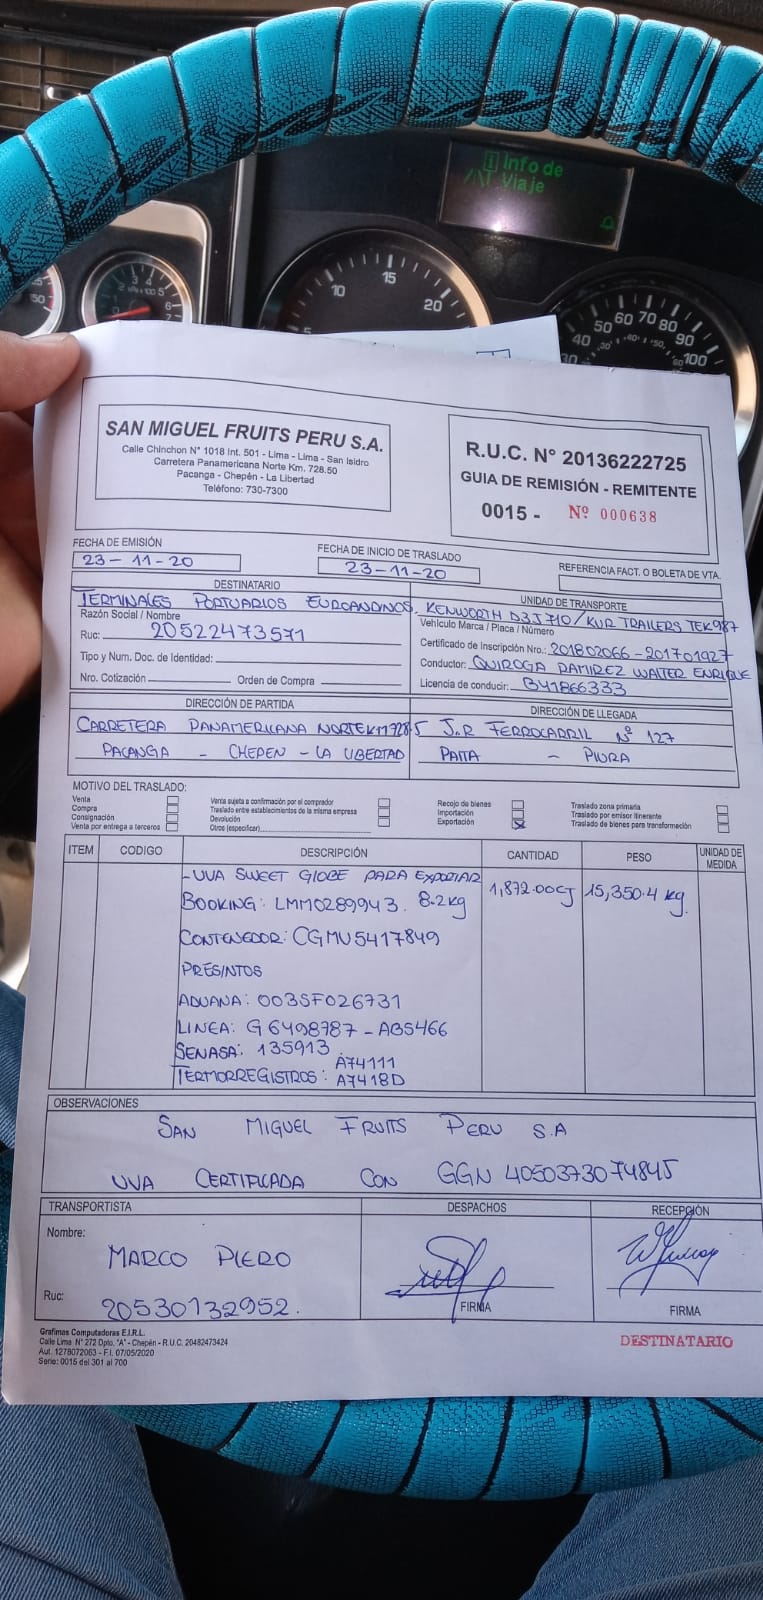 Info de
Viaje
SAN MIGUEL FRUITS PERU S.A.
Calle Chinchon N° 1018 Int. 501 - Lima - Lima - San Isidro
Carretera Panamericana Norte Km. 728.50
Pacanga - Chepén - La Libertad
Teléfono: 730-7300
R.U.C. N° 20136222725
GUIA DE REMISIÓN - REMITENTE
0015 - Nº 000638
FECHA DE EMISIÓN
23-11-20
FECHA DE INICIO DE TRASLADO
23-11-20
REFERENCIA FACT. O BOLETA DE VTA.
DESTINATARIO
TERMINALES PORTUARIOS EUROANDINOS
Razón Social / Nombre
Ruc: 20522473571
Tipo y Num. Doc. de Identidad:
Nro. Cotización Orden de Compra
UNIDAD DE TRANSPORTE
KENWORTH D3J710/KUR TRAILERS TEK987
Vehículo Marca / Placa / Número
Certificado de Inscripción Nro.: 201802066-201701927
Conductor: QUIROGA RAMIREZ WALTER ENRIQUE
Licencia de conducir: B41866333
DIRECCIÓN DE PARTIDA
CARRETERA PANAMERICANA NORTE KM 728.5
PACANGA - CHEPEN - LA LIBERTAD
DIRECCIÓN DE LLEGADA
J.R FERROCARRIL Nº 127
PAITA - PIURA
MOTIVO DEL TRASLADO:
Venta
Compra
Consignación
Venta por entrega a terceros
Venta sujeta a confirmación por el comprador
Traslado entre establecimientos de la misma empresa
Devolución
Otros (especificar)
Recojo de bienes
Importación
Exportación
Traslado zona primaria
Traslado por emisor itinerante
Traslado de bienes para transformación
ITEM CODIGO DESCRIPCIÓN CANTIDAD PESO UNIDAD DE MEDIDA
-UVA SWEET GLOBE PARA EXPORTAR 1,872.00CJ 15,350.4 kg.
BOOKING: LMM0289943. 8.2kg
CONTENEDOR: CGMU5417849
PRESINTOS
ADUANA: 003SF026731
LINEA: G6498787-AB5466
SENASA: 135913.
A74111
TERMORREGISTROS: A7418D
OBSERVACIONES
SAN MIGUEL FRUITS PERU S.A
UVA CERTIFICADA CON GGN 4050373074845
TRANSPORTISTA
Nombre:
MARCO PIERO
Ruc: 20530132952.
DESPACHOS
FIRMA
RECEPCIÓN
FIRMA
Grafimas Computadoras E.I.R.L.
Calle Lima N° 272 Dpto. "A" - Chepén - R.U.C. 20482473424
Aut. 1278072063 - F.I. 07/05/2020
Serie: 0015 del 301 al 700
DESTINATARIO